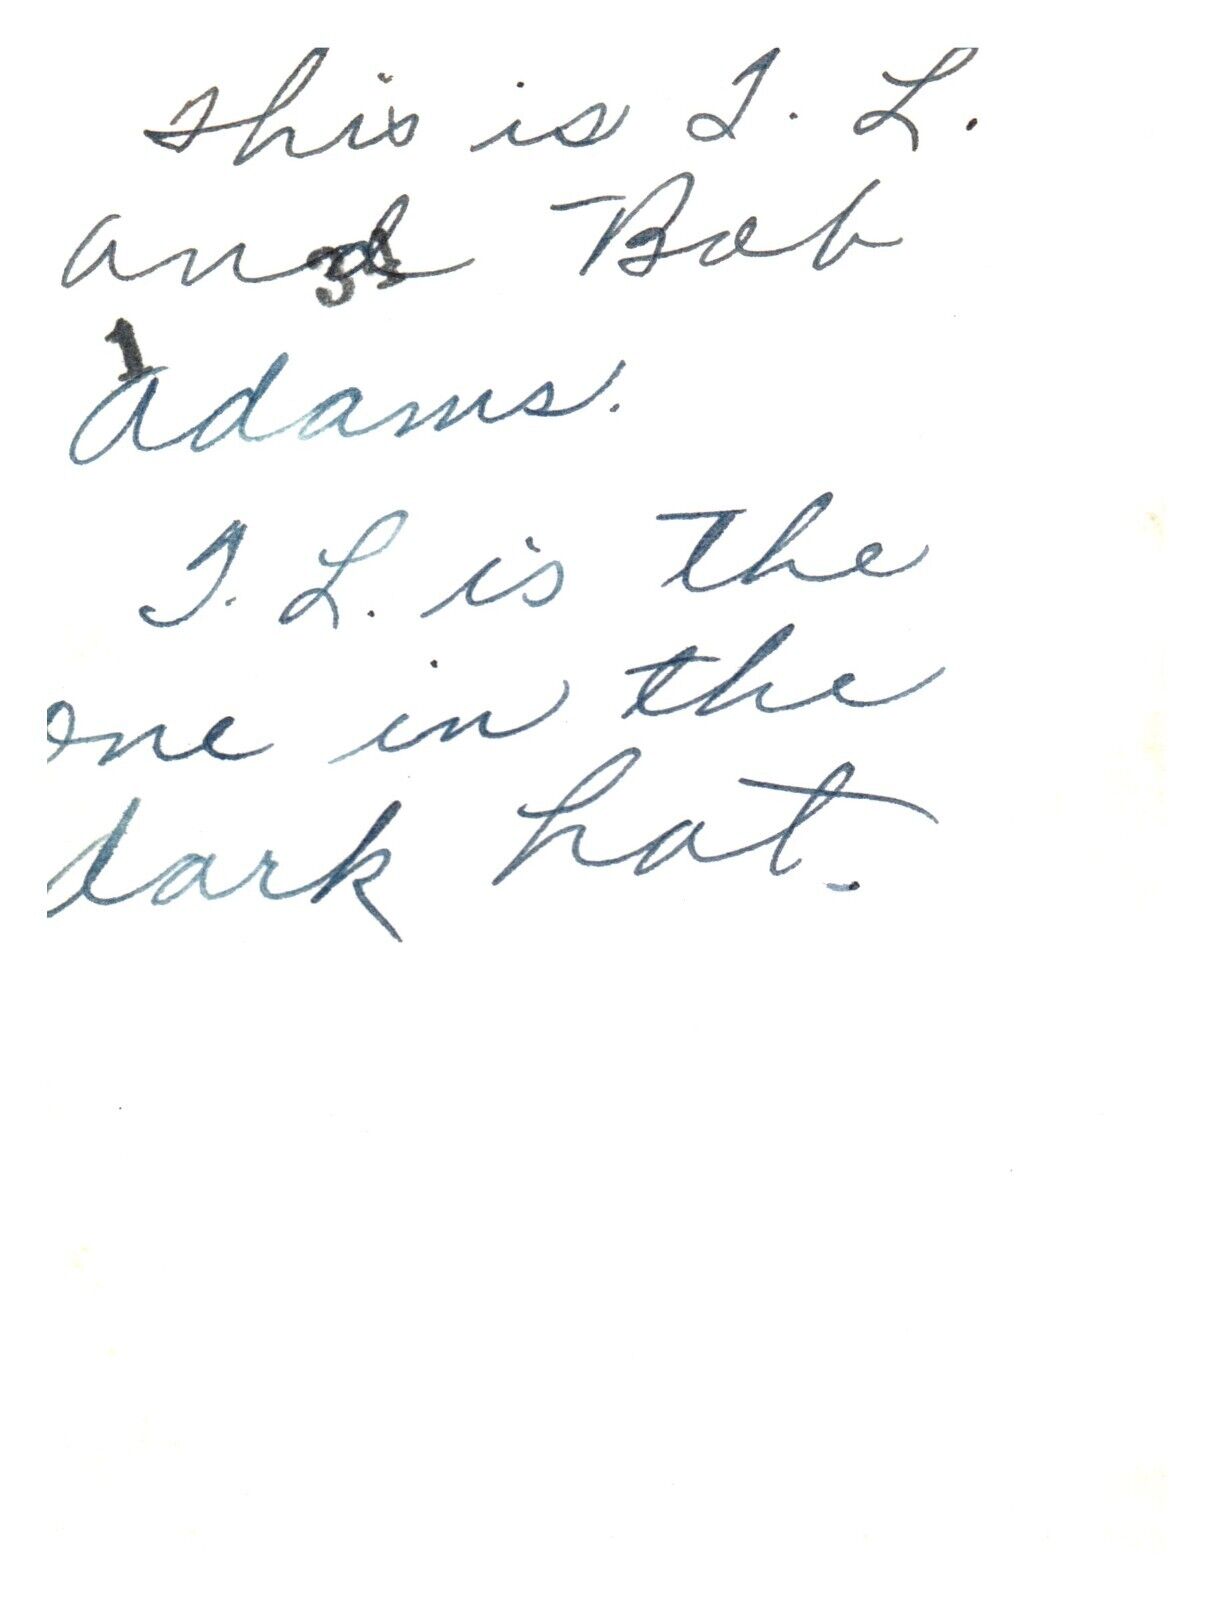 This is T. L.
and Bob
1
Adams.
T. L. is the
one in the
dark hat.